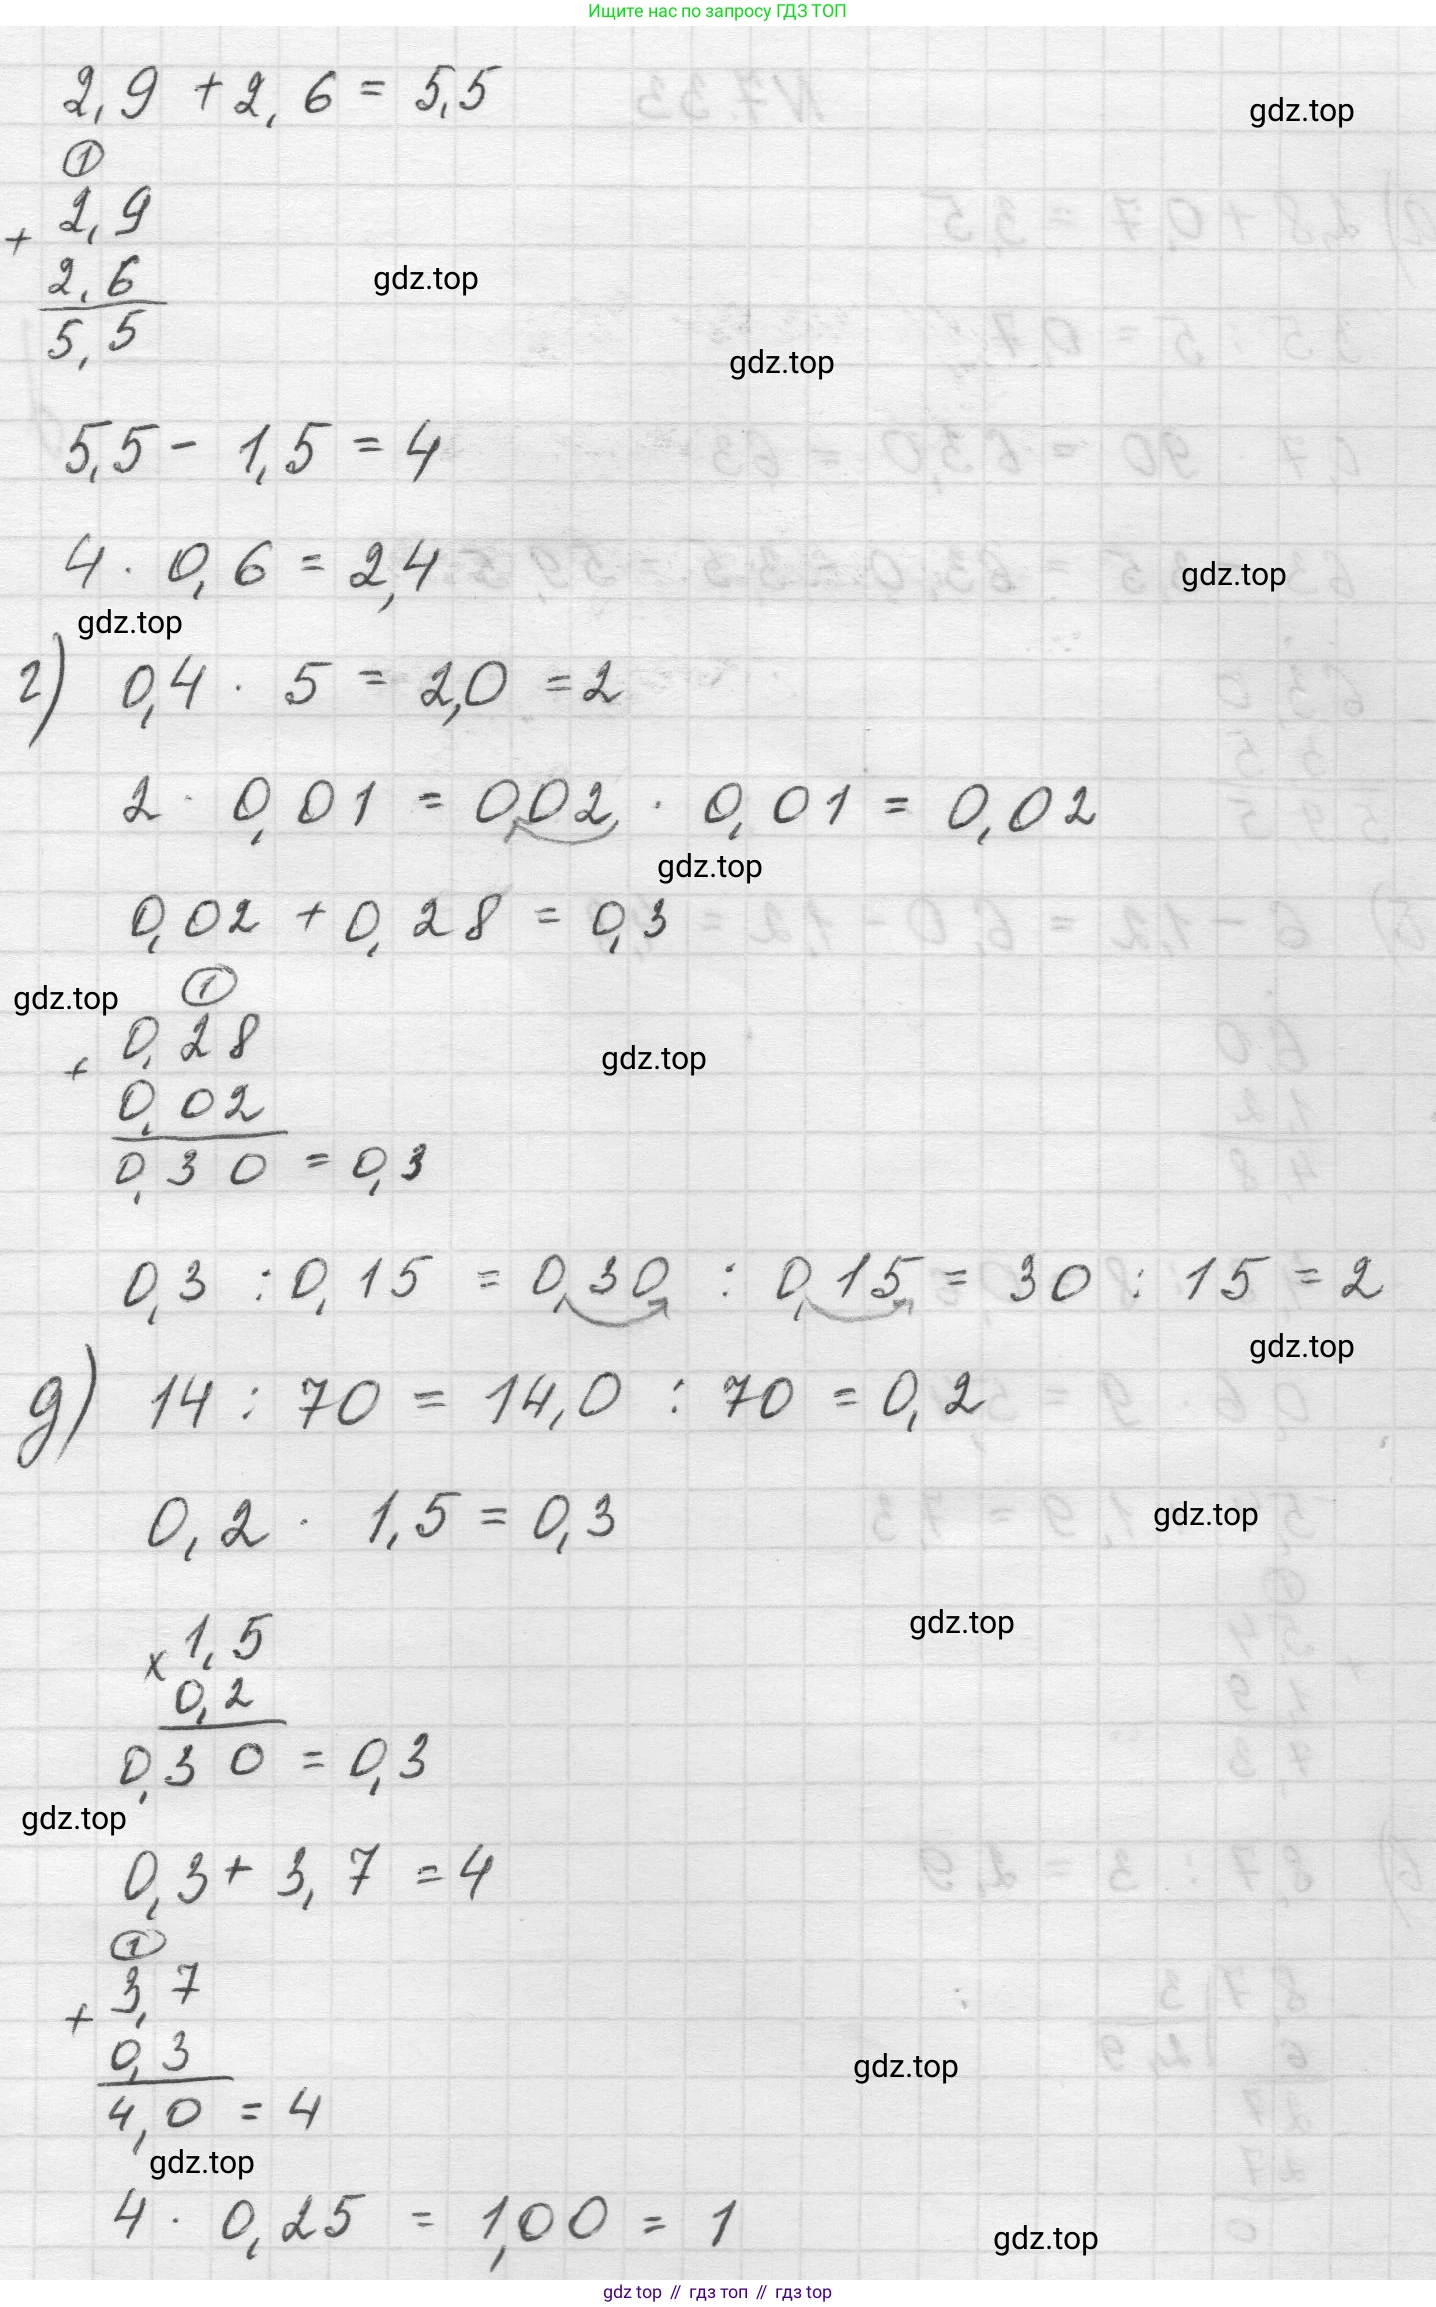 Ищите нас по запросу ГДЗ ТОП
2,9 + 2,6 = 5,5
gdz.top
1
+ 2,9
2,6
gdz.top
5,5
gdz.top
5,5 - 1,5 = 4
4 · 0,6 = 2,4
gdz.top
gdz.top
г) 0,4 · 5 = 2,0 = 2
2 · 0,01 = 002, · 0,01 = 0,02
gdz.top
0,02 + 0,28 = 0,3
gdz.top
1
+ 0,28
gdz.top
0,02
0,30 = 0,3
0,3 : 0,15 = 0,30 : 0,15 = 30 : 15 = 2
gdz.top
д) 14 : 70 = 14,0 : 70 = 0,2
0,2 · 1,5 = 0,3
gdz.top
x 1,5
gdz.top
0,2
0,30 = 0,3
gdz.top
0,3 + 3,7 = 4
1
+ 3,7
0,3
gdz.top
4,0 = 4
gdz.top
4 · 0,25 = 1,00 = 1
gdz.top
gdz top // гдз топ // гдз top